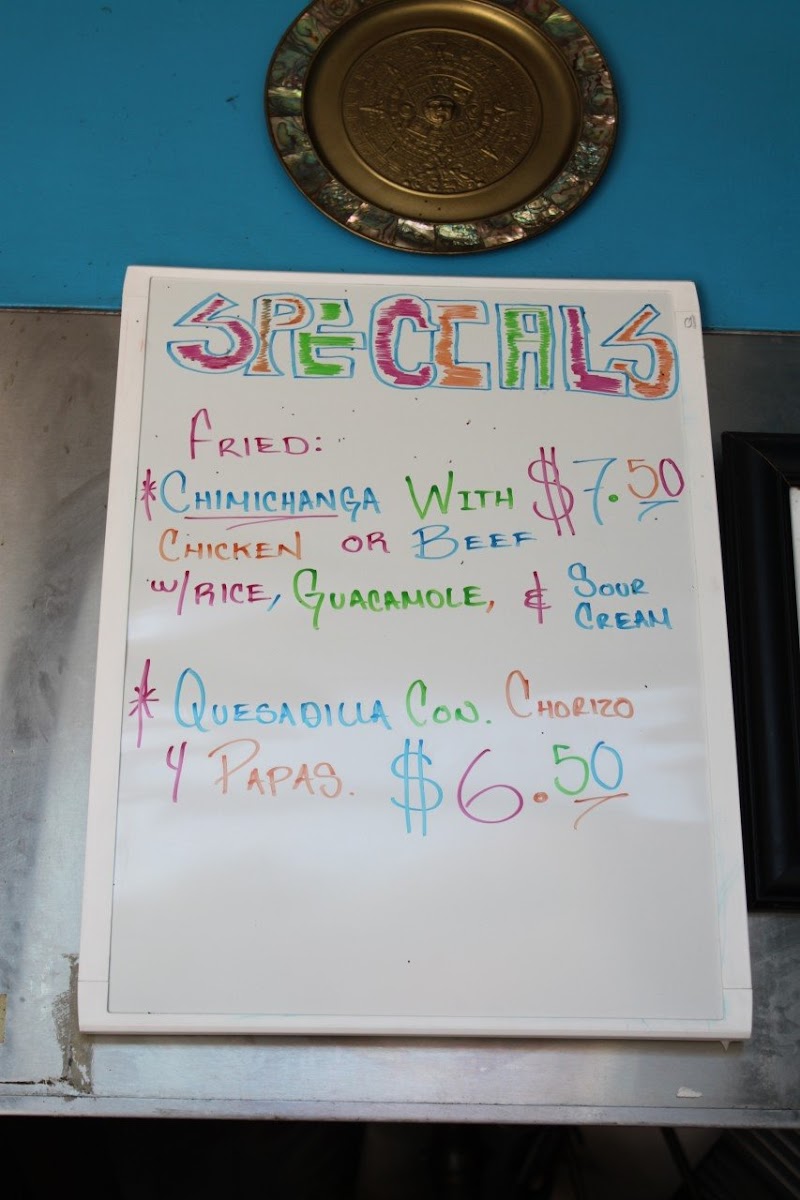 SPECIALS
FRIED:
*CHIMICHANGA WITH $7.50
CHICKEN OR BEEF
W/RICE, GUACAMOLE, & SOUR CREAM
* QUESADILLA CON. CHORIZO
Y PAPAS. $6.50